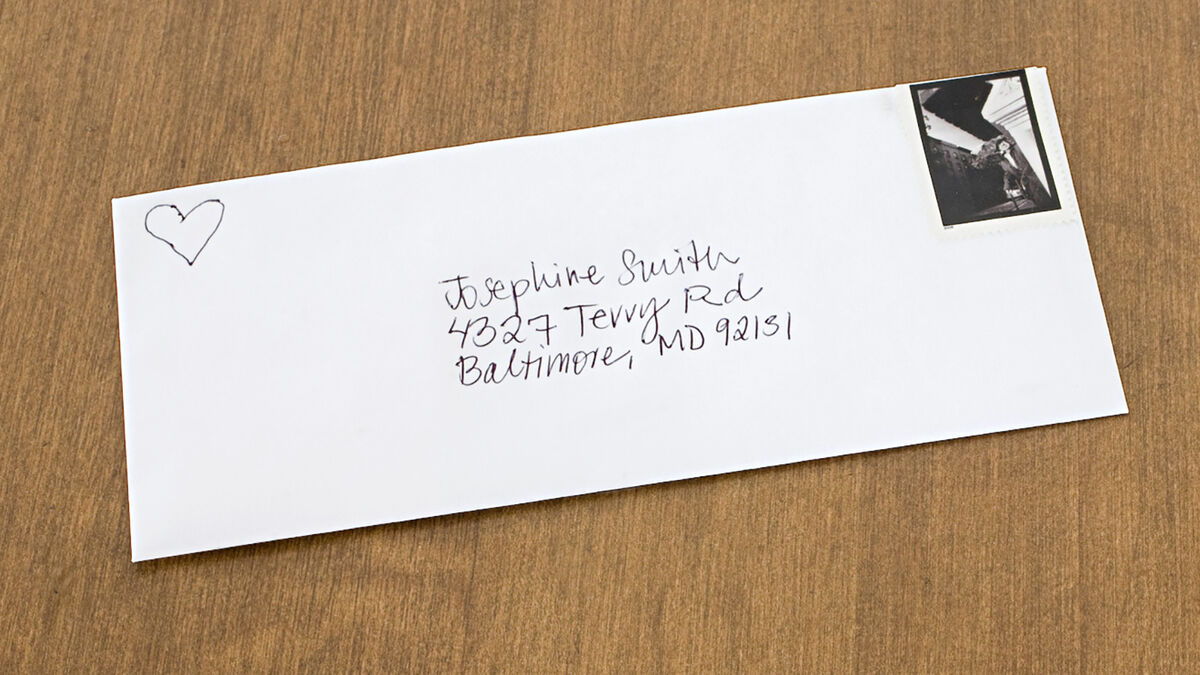 Josephine Smith
4327 Terry Rd
Baltimore, MD 92131